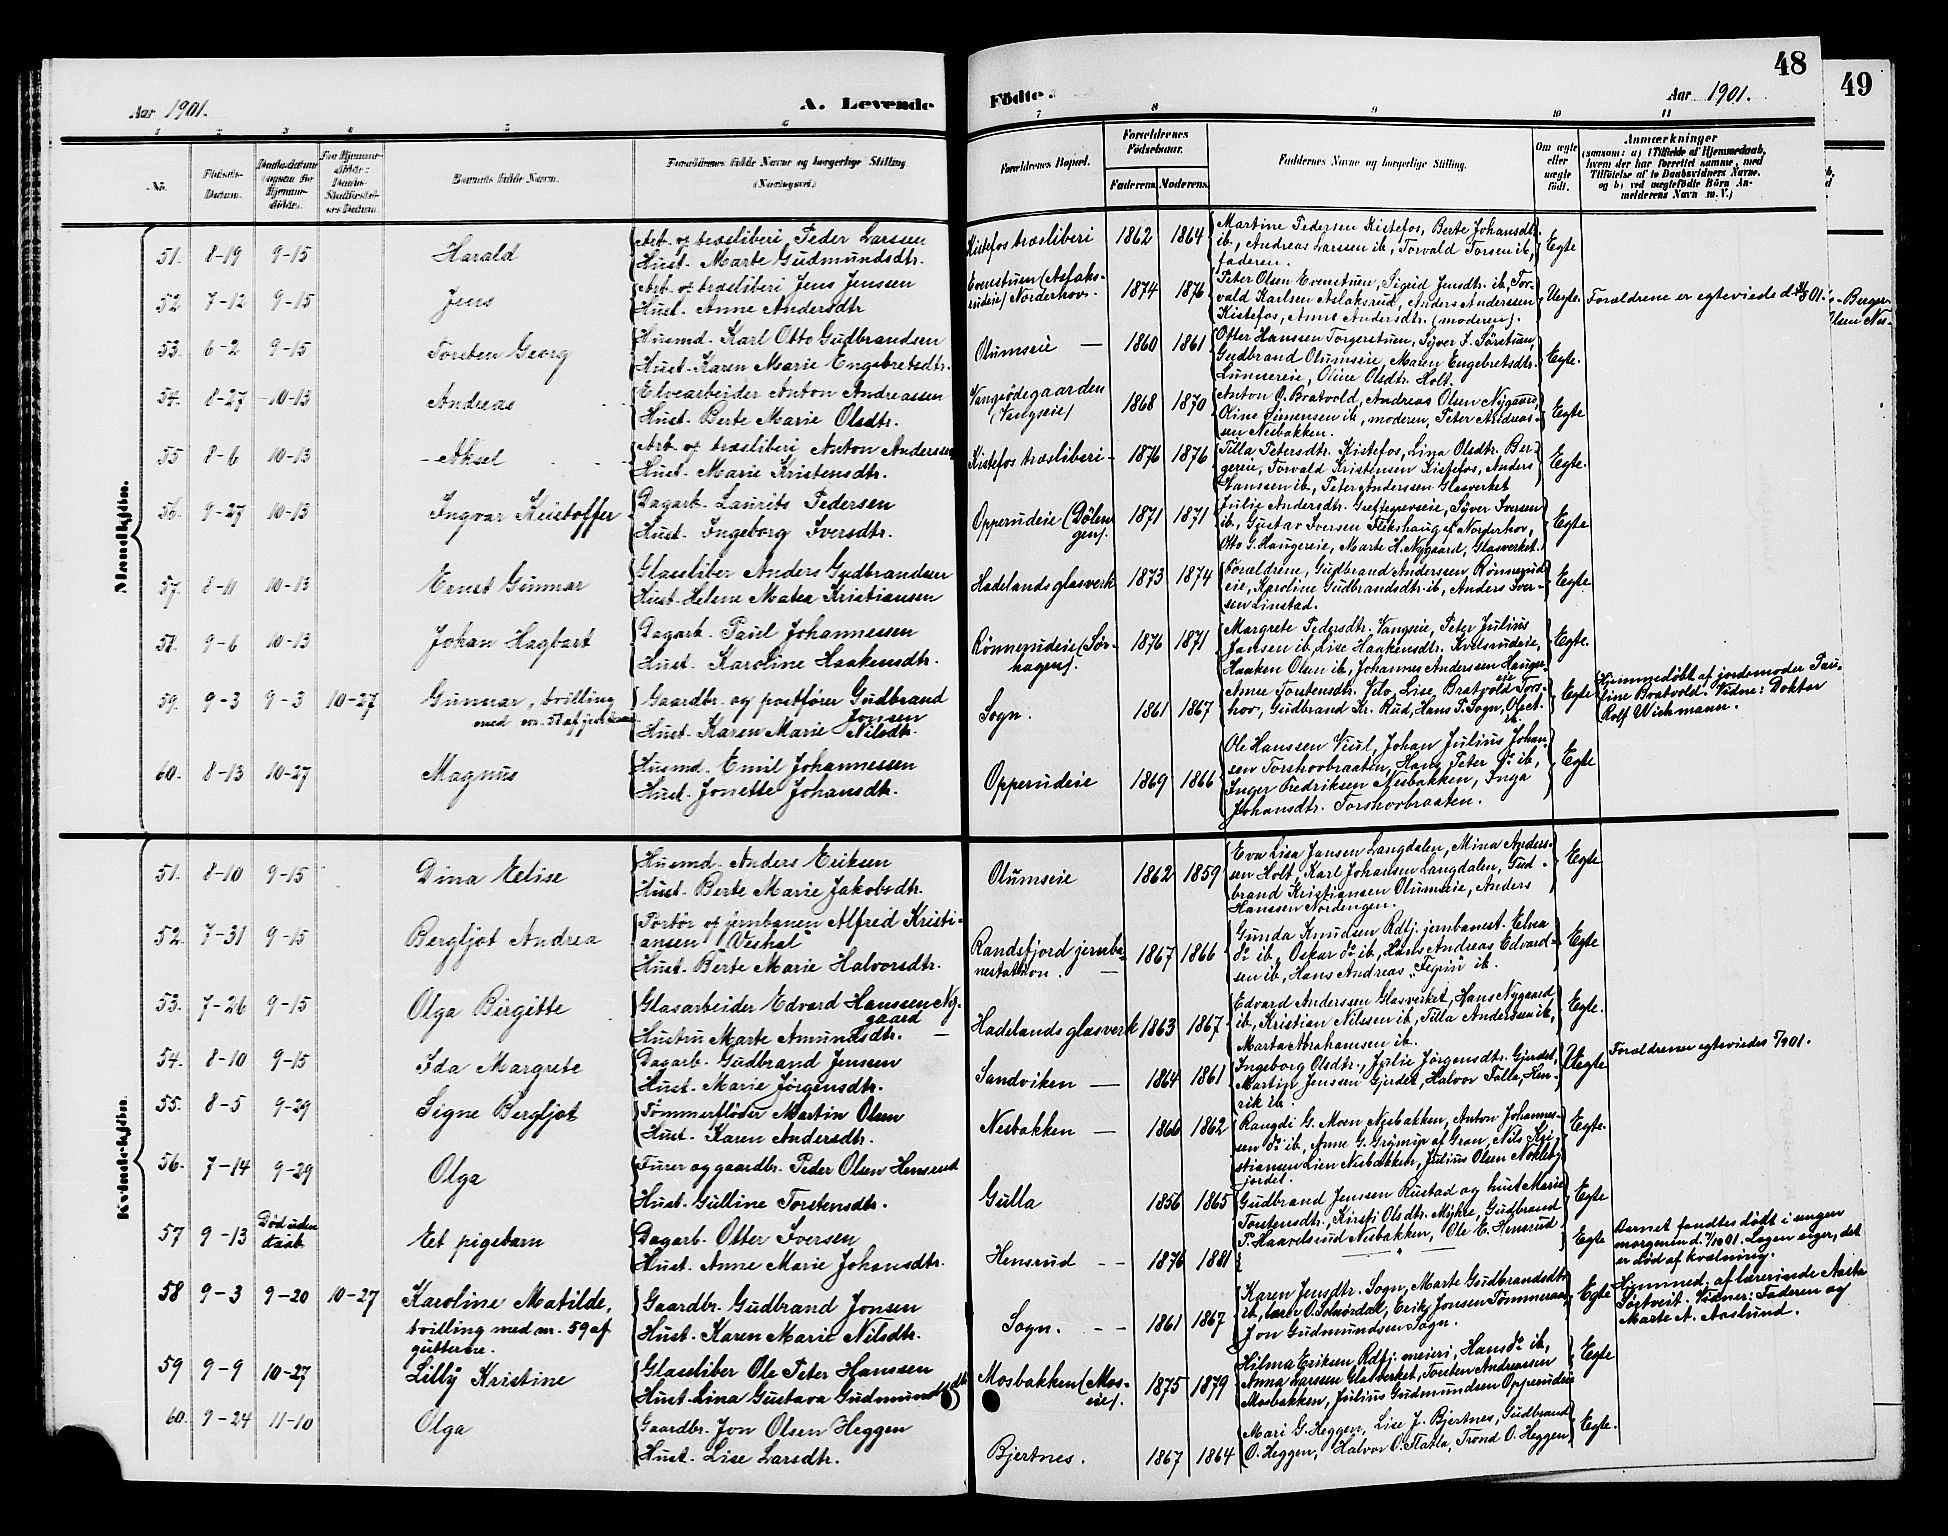 48
49
Aar 1901.
A. Levende
Fødte.
Aar 1901.
1 2 3 4 5 6 7 8 9 10 11
No.
Fødsels-Datum.
Barnets fulde Navn.
Forældrenes fulde Navne og borgerlige Stilling
(Næringsvei)
Forældrenes Bopæl.
Forældrenes Fødselsaar.
Faderens. Moderens.
Faddernes Navne og borgerlige Stilling.
Om ægte eller uægte født.
Anmærkninger
(saasom: a) i Tilfælde af Hjemmedaab,
hvem der har forrettet samme, med
Tilføielse af to Daabsvidners Navne.
og b) ved uægtefødte Børn An-
melderens Navn m. V.)
Mandkjøn.
51. 8-19 9-15 Harald
Arb. v. træsliberi Peder Larssen
Hust. Marte Gudmundsdtr.
Kistefos træsliberi 1862 1864
Martine Pedersen Kistefos, Berte Johansdtr.
ib., Andreas Larssen ib., Torvald Torsen ib.,
faderen.
Egte
52 7-12 9-15 Jens
Arb. v. træsliberi Jens Jenssen
Hust. Anne Andersdtr
Evenstuen (Aslaks-
rudeie) Norderhov. 1874 1876
Peter Olsen Evenstuen, Sigrid Jensdtr. ib., Tor-
vald Karlsen Aslaksrud, Anders Anderssen
Kistefos, Anne Andersdtr. (moderen).
Uegte. Forældrene er egteviede d.
53. 6-2 9-15 Torsten Georg
Husmd. Karl Otto Gudbrandsen
Hust. Karen Marie Engebretsdtr.
Olumseie — 1860 1861
Otter Hanssen Torgerstuen, Syver J. Sørstuen,
Gudbrand Olumseie, Maren Engebretsdtr.
Lunnereie, Oline Olsdtr. Holt.
Egte.
54. 8-27 10-13 Andreas
Elvearbeider Anton Andreassen
Hust. Berte Marie Olsdtr.
Vangsødegaarden
(Vangseie) 1868 1870
Anton O. Bratvold, Andreas Olsen Nygaard,
Oline Simensen ib., moderen, Peter Andreas-
sen Nesbakken.
Egte
55 8-6 10-13 Aksel
Arb. v. træsliberi Anton Anderssen
Hust. Marie Kristensdtr.
Kistefos træsliberi 1876 1876
Tilla Petersdtr. Kistefos, Lina Olsdtr. Ber-
gereie, Torvald Kristensen Kistefos, Anders
Hanssen ib., Peter Anderssen Glasverket
Egte.
56. 9-27 10-13 Ingvar Kristoffer
Dagarb. Laurits Pedersen
Hust. Ingeborg Iversdtr.
Opperudeie (Dølen-
gen). 1871 1871
Julie Andersdtr. Greftegreveie, Syver Iversen
ib., Gustav Iversen Flikshaug af Norderhov,
Otto G. Haugereie, Marte H. Nygaard, Glasverket.
Egte
57. 8-11 10-13 Ernst Gunnar
Glassliber Anders Gudbrandsen
Hust. Helene Matea Kristiansen
Hadelands glasverk 1873 1874
Forældrene, Gudbrand Anderssen Rønnerud-
eie, Karoline Gudbrandsdtr. ib., Anders Iver-
sen Linstad.
Egte
58. 9-6 10-13 Johan Hagbart
Dagarb. Paul Johannessen
Hust. Karoline Haakensdtr.
Rønnerudeie (Sør-
hagen). 1876 1871
Margrete Pedersdtr. Vangseie, Peter Julius
Jansen ib., Lise Haakensdtr. Kvelsrudeie,
Haaken Olsen ib., Johannes Anderssen Hauger-
eie
Egte.
59. 9-3 9-3 10-27 Gunnar, tvilling
med nr. 58 af pikebørn
Gaardbr. og postfører Gudbrand
Jonsen
Hust. Karen Marie Nilsdtr.
Sogn. 1861 1867
Anne Torstensdtr. Velo, Lise Bratvold Tors-
hov, Gudbrand Kr. Rud, Hans P. Sogn,
ib.
Egte
Hjemmedøbt af jordemoder Pau-
line Bratvold. Vidne: Doktor
Rolf Wichmann.
60. 8-13 10-27 Magnus
Husmd. Emil Johannessen
Hust. Jonette Johansdtr.
Opperudeie 1869 1866
Ole Hanssen Viul, Johan Julius Johan-
sen Torshovbraaten, Hans Peter do ib.,
Inger Fredriksen Nesbakken, Inga
Johansdtr. Torshovbraaten.
Egte
Kvindekjøn.
51. 8-10 9-15 Dina Elise
Husmd. Anders Eriksen
Hust. Berte Marie Jakobsdtr.
Olumseie 1862 1859
Eva Lisa Jansen Langdalen, Mina Anders-
sen Holt, Karl Johansen Langdalen, Gud-
brand Kristiansen Olumseie, Anders
Hanssen Nordengen.
Egte
52. 7-31 9-15 Bergljot Andrea
Portør v. jernbanen Alfred Kristi-
ansen "Veshal"
Hust. Berte Marie Halvorsdtr.
Randsfjord jernba-
nestation. — 1867 1866
Gunda Knudsen Rdfj. jernbanest. Elna
do ib., Oskar do ib., Hans Andreas Edvard-
sen ib., Hans Andreas "Fegrin" ib.
Egte
53. 7-26 9-15 Olga Birgitte
Glasarbeider Edvard Hanssen Ny-
gaard
Hustru Marte Amundsdtr. —
Hadelands glasverk 1863 1867
Edvard Anderssen Glasverket, Hans Nygaard
ib., Kristian Nilssen ib., Tilla Anderssen ib.,
Marta Abrahamsen ib.
Egte.
54. 8-10 9-15 Ida Margrete
Dagarb. Gudbrand Jenssen
Hust. Marie Jørgensdtr.
Sandviken — 1864 1861
Ingeborg Olsdtr., Julie Jørgensdtr. Gjerdet,
Martin Jenssen Gjerdet, Halvor Falla, Hen-
rik ib.
Uegte Forældrene egteviedes 5/901.
55. 8-5 9-29 Signe Bergljot
Tømmerfløder Martin Olsen
Hust. Karen Andersdtr.
Nesbakken — 1866 1862
Rangdi G. Moen Nesbakken, Anton Johannes-
sen do ib., Anne G. Grymyr af Gran, Nils Kri-
stiansen Lien Nesbakken, Julius Olsen Nokleby
jordet.
Egte.
56. 7-14 9-29 Olga
Furer og gaardbr. Peder Olsen Hensrud
Hust. Gulline Torstensdtr.
Gulla 1856 1865
Gudbrand Jenssen Rustad og hust. Marie
Torstensdtr., Kirsti Olsdtr. Myhre, Gudbrand
P. Haavelsrud Nesbakken, Ole E. Hensrud
Egte
57 9-13 Død uden
daab Et pigebarn
Dagarb. Otter Iversen
Hust. Anne Marie Johansdtr.
Hensrud — 1876 1881
Egte
Barnet fandtes dødt i sengen
morgenen d. Lægen siger, det
er død af kvælning.
58 9-3 9-20 10-27 Karoline Matilde,
tvilling med nr. 59 af
gutterne.
Gaardbr. Gudbrand Jonsen
Hust. Karen Marie Nilsdtr.
Sogn. — 1861 1867
Karen Jensdtr. Sogn, Marte Gudbrandsdtr.
ib., lærer O. Solnørdal, Erik Jonsen Tømmeraas,
Jon Gudmundsen Sogn.
Egte
Hjemmed. af lærerinde Aasta
Søstveit. Vidner: Faderen og
Marte A. Aaslund.
59 9-9 10-27 Lilly Kristine
Glassliber Ole Peter Hanssen
Hust. Lina Gustava Gudmundsdtr.
Mosbakken (Mos-
eie). 1875 1879
Hilma Eriksen Rdfj. meieri, Hans do ib.,
Anna Larssen Glasverket, Torsten Andreassen
Mosbakken, Julius Gudmundsen Opperudeie
Egte
60. 9-24 11-10 Olga
Gaardbr. Jon Olsen Heggen
Hust. Lise Larsdtr.
Bjertnes. 1867 1864
Mari G. Heggen, Lise J. Bjertnes, Gudbrand
O. Heggen, Halvor O. Flatla, Trond O. Heggen
Egte.